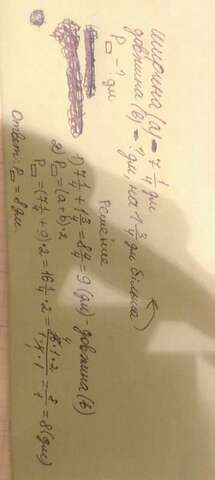 ширина (a) = 7 1/4 дм
довжина (b) = ? дм, на 1 3/4 дм більша
P□ - ? дм
Решение
1) 7 1/4 + 1 3/4 = 8 4/4 = 9 (дм) - довжина (b)
2) P□ = (a + b) · 2
P□ = (7 1/4 + 9) · 2 = 16 1/4 · 2 = = 8 (дм)
Ответ: P□ = 8 дм.